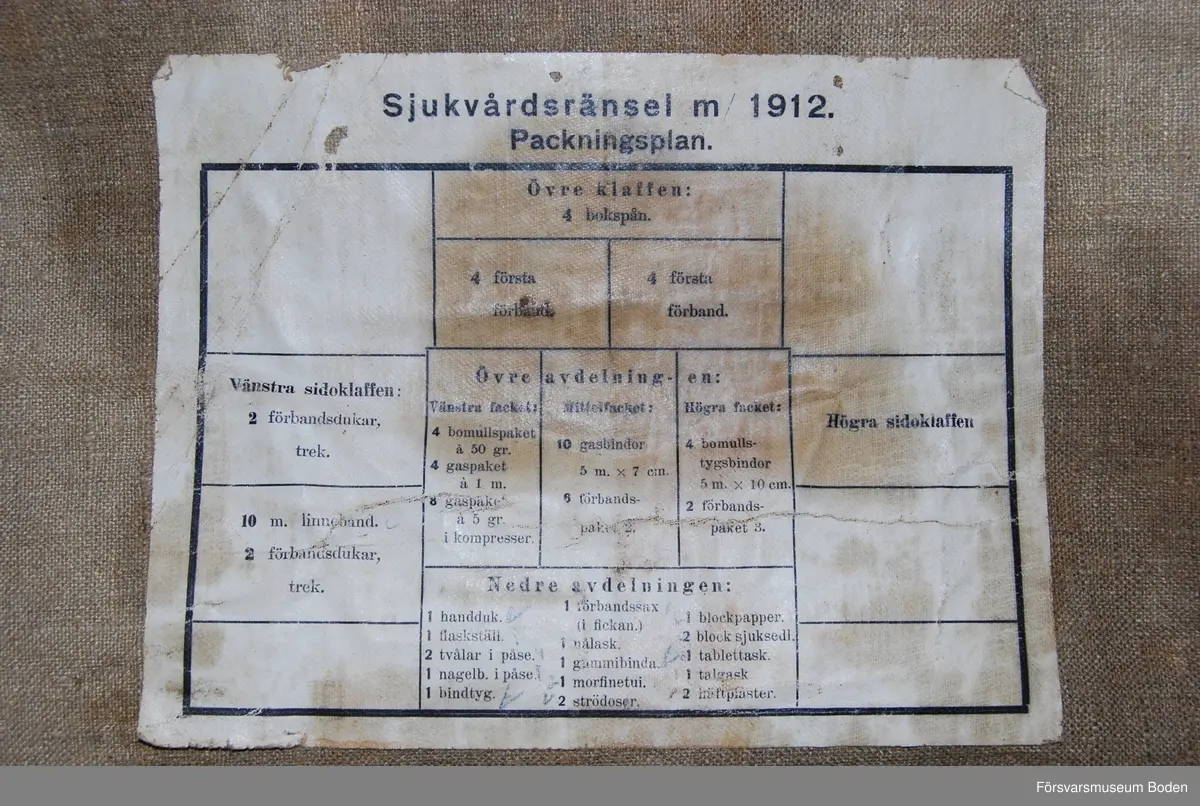 Sjukvårdsränsel m/ 1912.
Packningsplan.
Övre klaffen:
4 bokspån.
4 första
förband.
4 första
förband.
Vänstra sidoklaffen:
2 förbandsdukar,
trek.
10 m. linneband.
2 förbandsdukar,
trek.
Övre avdelning- en:
Vänstra facket:
4 bomullspaket
à 50 gr.
4 gaspaket
à 1 m.
8 gaspaket
à 5 gr.
i kompresser.
Mittelfacket:
10 gasbindor
5 m. × 7 cm.
6 förbands-
paket 2.
Högra facket:
4 bomulls-
tygsbindor
5 m. × 10 cm.
2 förbands-
paket 3.
Högra sidoklaffen
Nedre avdelningen:
1 handduk.
1 flaskställ.
2 tvålar i påse.
1 nagelb. i påse.
1 bindtyg.
1 förbandssax
(i fickan.)
1 nålask.
1 gummibinda.
1 morfinetui.
2 strödoser.
1 blockpapper.
2 block sjuksedl.
1 tablettask.
1 talgask
2 häftplåster.
Försvarsmuseum Boden